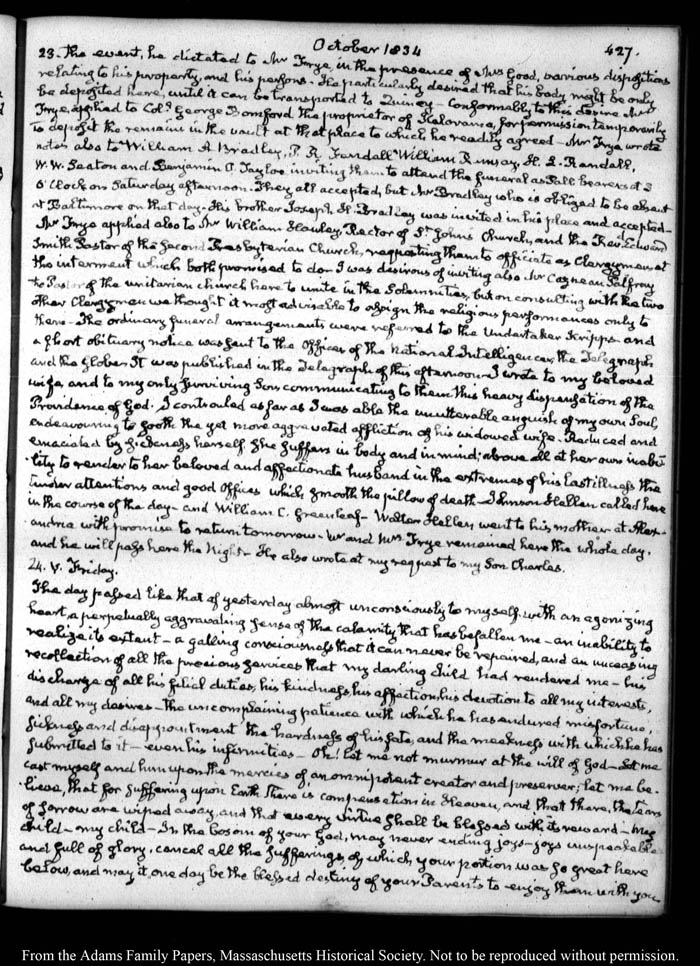 October 1834
427.
23. the event, he dictated to Mr Frye, in the presence of Mrs Good, various dispositions
relating to his property, and his persons. He particularly desired that his body might be only
be deposited here, until it can be transported to Quincy — conformably to this desire Mr
Frye applied to Coll. George Bomford the proprietor of Kalorama, for permission temporarily
to deposit the remains in the vault at that place to which he readily agreed — Mr Frye wrote
notes also to William A Bradley, P. R. Fendall William Ramsay, H. Randall,
W. W. Seaton and Benjamin O. Tayloe inviting them to attend the funeral as Pall bearers at 3
O'Clock on Saturday afternoon. They all accepted, but Mr Bradley who is obliged to be absent
at Baltimore on that day. His brother Joseph H. Bradley was invited in his place and accepted —
Mr Frye applied also to Mr William Hawley, Rector of St Johns Church, and the Revd. Edward
Smith Pastor of the Second Presbyterian Church, requesting them to officiate as Clergymen at
the interment which both promised to do. I was desirous of inviting also Mr Cazneau Palfrey
the Pastor of the unitarian church here to unite in the Solemnities, but on consulting with the two
other Clergymen we thought it most adviseable to assign the religious performances only to
them — The ordinary funeral arrangements were referred to the Undertaker Kripps — and
a short obituary notice was sent to the Offices of the National Intelligencer, the Telegraph
and the Globe. It was published in the Telegraph of this afternoon. I wrote to my beloved
wife, and to my only surviving Son communicating to them this heavy dispensation of the
Providence of God. I controuled as far as I was able the unutterable anguish of my own Soul,
endeavouring to sooth the yet more aggravated affliction of his widowed wife. Reduced and
emaciated by sickness herself she suffers in body and in mind; above all at her own inabi-
lity to render to her beloved and affectionate husband in the extremes of his last illness the
tender attentions and good Offices which smooth the pillow of death — Johnson Hellen called here
in the course of the day — and William C. Greenleaf — Walter Hellen went to his mother at Alex-
andria with promise to return tomorrow. Mr and Mrs Frye remained here the whole day,
and he will pass here the Night — He also wrote at my request to my Son Charles.
24. V. Friday.
The day passed like that of yesterday almost unconsciously to myself with an agonizing
heart, a perpetually aggravating sense of the calamity that has befallen me — an inability to
realize its extent — a galling consciousness that it can never be repaired, and an unceasing
recollection of all the precious services that my darling child had rendered me — his
discharge of all his filial duties, his kindness, his affection, his devotion to all my interests,
and all my desires — the uncomplaining patience with which he has endured misfortune,
sickness and disappointment the hardness of his fate, and the meekness with which he has
submitted to it — even his infirmities — Oh! let me not murmur at the will of God — Let me
cast myself and him upon the mercies of an omnipotent creator and preserver; let me be-
lieve, that for suffering upon Earth, there is compensation in Heaven, and that there, the tears
of sorrow are wiped away, and that every virtue shall be blessed with its reward — My
child — my child — In the bosom of your God, may never ending joys — joys unspeakable
and full of glory, cancel all the sufferings, of which your portion was so great here
below, and may it one day be the blessed destiny of your Parents to enjoy them with you
From the Adams Family Papers, Massachusetts Historical Society. Not to be reproduced without permission.